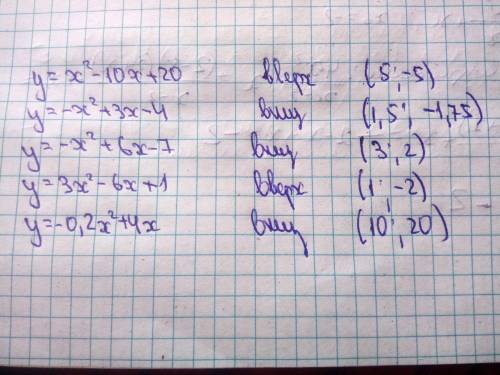 y=x²-10x+20 вверх (5; -5)
y=-x²+3x-4 вниз (1,5; -1,75)
y=-x²+6x-7 вниз (3; 2)
y=3x²-6x+1 вверх (1; -2)
y=-0,2x²+4x вниз (10; 20)